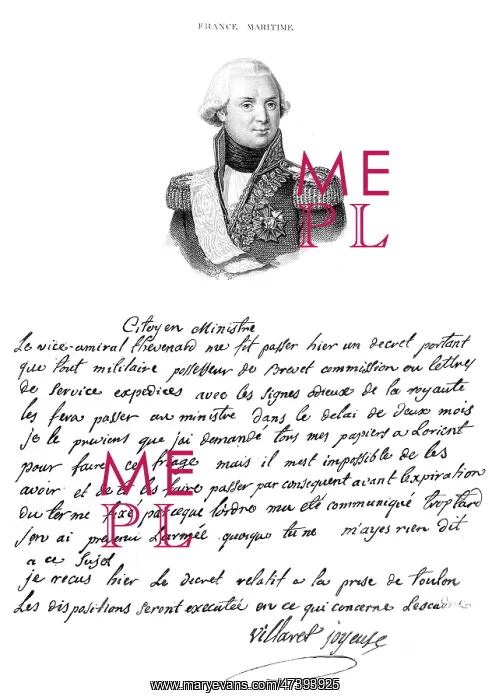 FRANCE MARITIME
ME
PL
Citoyen Ministre
Le vice-amiral thevenard me fit passer hier un decret portant
que tout militaire possesseur de Brevet commission ou lettres
de service expediees avec les signes odieux de la royauté
les fera passer au ministre dans le delai de deux mois
je te previens que jai demandé tous mes papiers a Lorient
pour faire ce triage mais il mest impossible de les
avoir et de te les faire passer par consequent avant lexpiration
du terme fixé parceque lordre ma eté communiqué trop tard
jen ai prevenu Larmée quoique tu ne mayes rien dit
a ce sujet
je recus hier Le decret relatif a la prise de toulon
Les dispositions seront executée en ce qui concerne
villaret joyeuse
ME
PL
www.maryevans.com/47393925